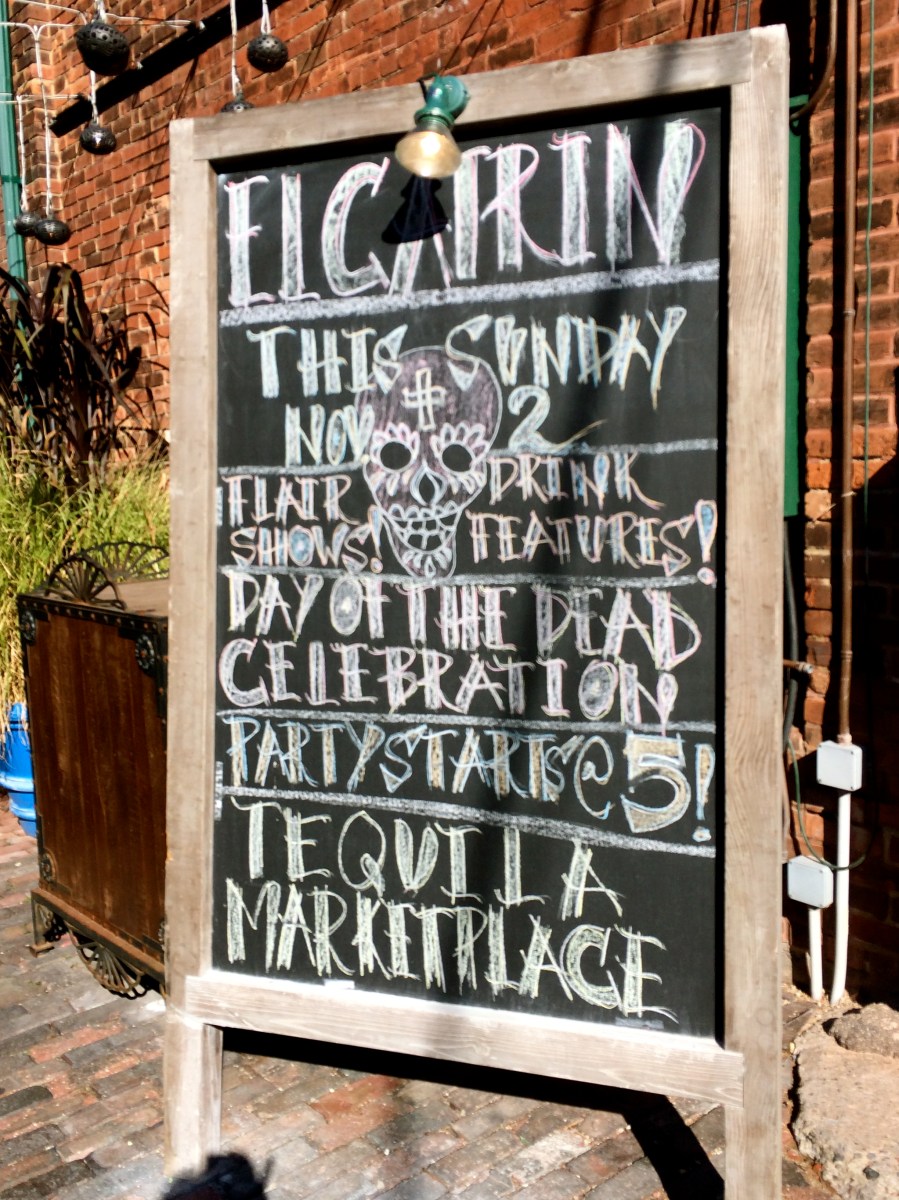 EL CATRIN
THIS SUNDAY
NOV 2
FLAIR DRINK
SHOWS! FEATURES!
DAY OF THE DEAD
CELEBRATION!
PARTY STARTS @ 5!
TEQUILA
MARKETPLACE